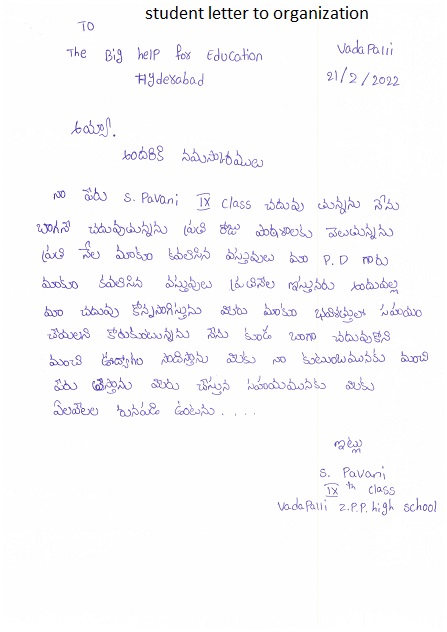 student letter to organization
TO
The Big help for Education
Hyderabad
Vadapalli
21/2/2022
అయ్యా!
అందరికి నమస్కారములు
నా పేరు S. Pavani IX class చదువు తున్నను నేను
బాగానే చదువుతున్నను ప్రతి రోజు పాఠశాలకు వెలుతున్నను
ప్రతి నేల మాకు కవలిసిన వస్తువులు మా P.D గారు
మాకు కవలిసిన వస్తువులు ప్రతినేల ఇస్తునరు అందువల్ల
మా చదువు కోన్నసాగిస్తును మీరు మాకు భవిశత్తులో సహయం
చేయలని కోరుకుంటున్నను నేను కూడ బాగా చదువుకోని
మంచి ఉద్యోగం సాదిస్తాను మీకు నా కుటుంబమునకు మంచి
పేరు తెస్తాను మీరు చేస్తున సహయమునకు మీకు
ఏలవేలల రునపడి ఉంటును ....
ఇట్లు
S. Pavani
IX th class
Vadapalli Z.P.P. high school